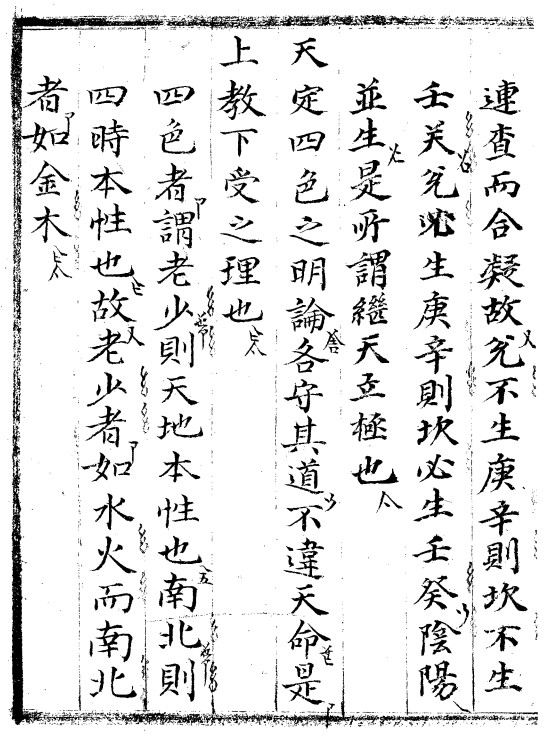 連查而合凝故兌不生庚辛則坎不生
壬关兌必生庚辛則坎必生壬癸陰陽
並生是所謂繼天立極也
天定四色之明論各守其道不違天命是
上教下受之理也
四色者謂老少則天地本性也南北則
四時本性也故老少者如水火而南北
者如金木